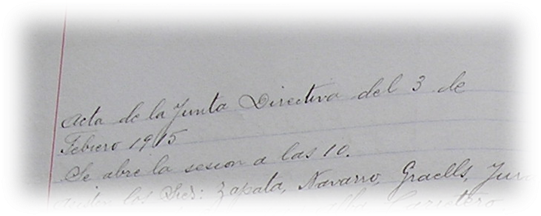 Acta de la Junta Directiva del 3 de
Febrero 1915
Se abre la sesion a las 10.
los Sres: Zapata, Navarro, Graells,